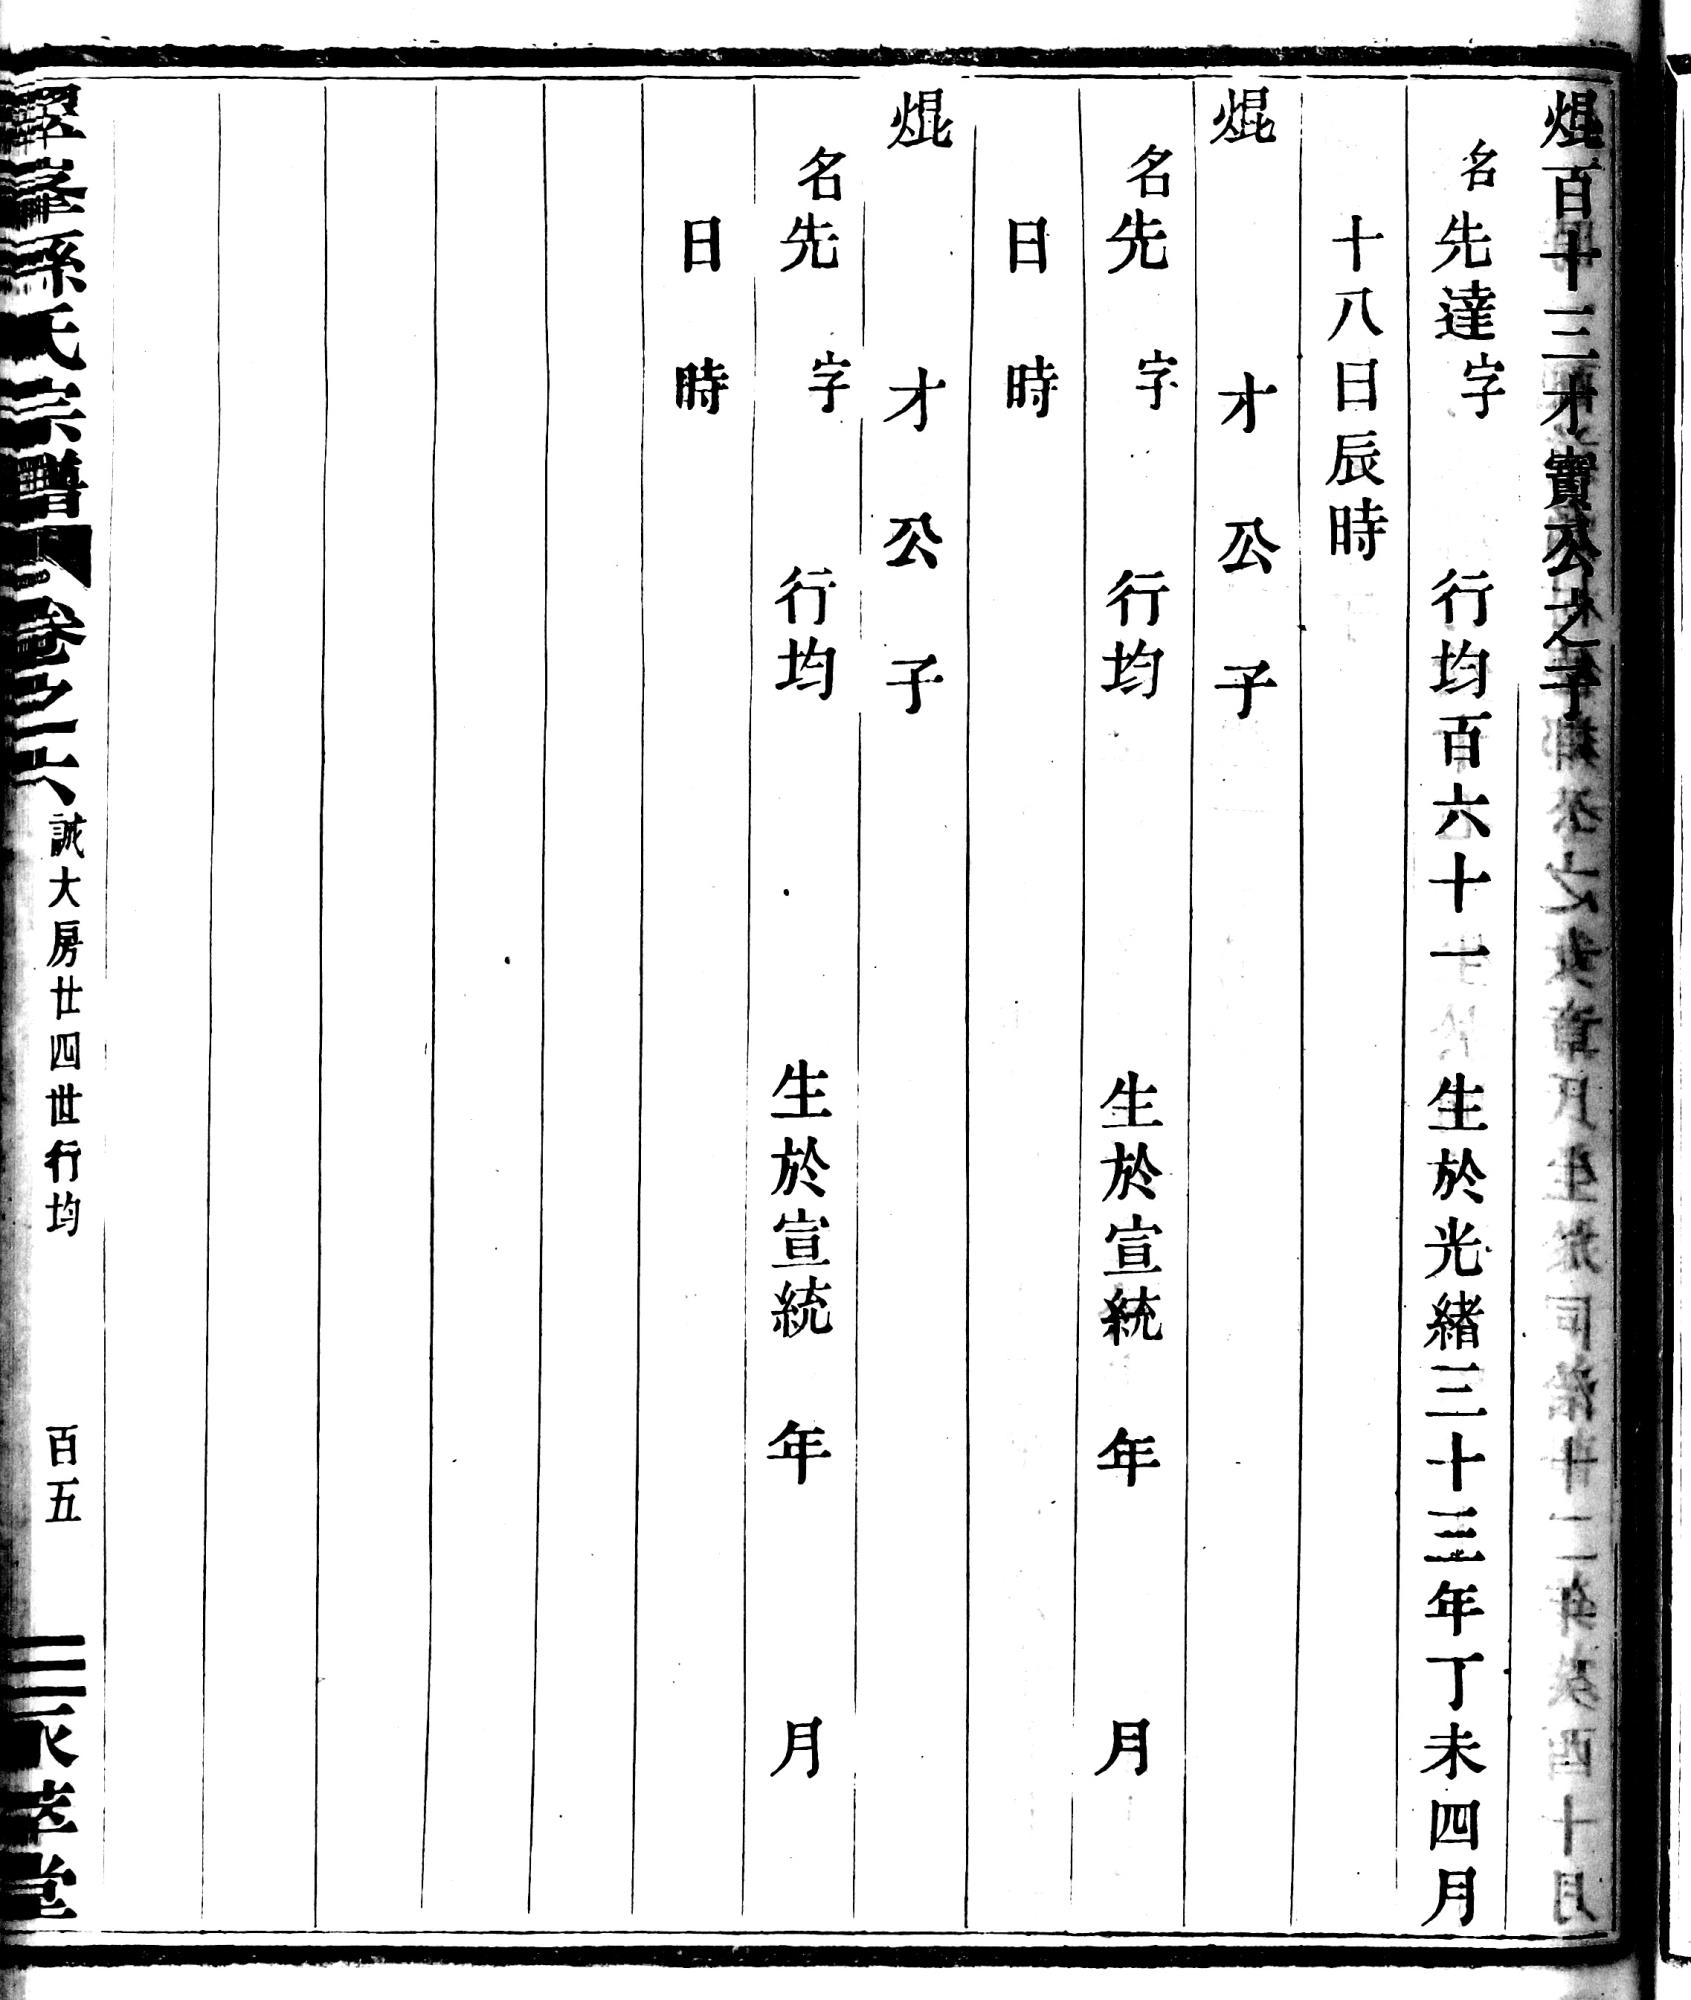 焜百十三才寳公之子
名先達字 行均百六十一 生於光緒三十三年丁未四月
十八日辰時
焜 才 公 子
名先 字 行均 生於宣統 年 月
日 時
焜 才 公 子
名先 字 行均 生於宣統 年 月
日 時
孫氏宗譜 卷之六 誠大房廿四世行均 百五 堂